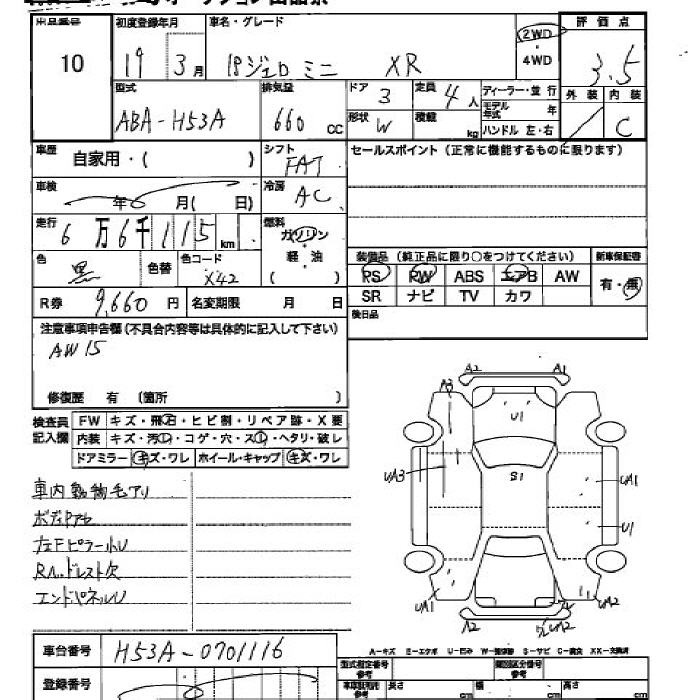 出品番号 初度登録年月 車名・グレード 評価点
10 19 3月 18ジェロ ミニ XR 2WD・4WD 3.5
型式 排気量 ドア 定員 ディーラー・並行 外装 内装
ABA-H53A 660 CC 3 4人 モデル年式 年
形状 W 積載 kg ハンドル 左・右 C
車歴 自家用・( ) シフト FAT セールスポイント(正常に機能するものに限ります)
車検 年 月( 日) 冷房 AC
走行 6万6千115 km 燃料 ガソリン
色 黒 色替 色コード X42 軽・油 ( )
装備品(純正品に限り○をつけてください) 新車保証書
PS PW ABS エアB AW 有・無
SR ナビ TV カワ
R券 9,660円 名変期限 月 日 後日品
注意事項申告欄(不具合内容等は具体的に記入して下さい)
AW15
修復歴 有 (箇所 )
検査員記入欄 FW キズ・飛石・ヒビ割・リペア跡・X要
内装 キズ・汚レ・コゲ・穴・スレ・ヘタリ・破レ
ドアミラー キズ・ワレ ホイール・キャップ キズ・ワレ
A2 A1
A3 U1
UA3 S1 UA1
U1
UA1 UA2
A2 UA2
車内動物毛アリ
ボディPアセ
左Fピラー小U
エンドパネルU
A-キズ E-エクボ U-凹み W-補修跡 S-サビ C-腐食 XX-交換済
車台番号 H53A-0701116
型式指定番号 参考 類別区分番号 参考
登録番号 長さ cm 幅 cm 高さ cm